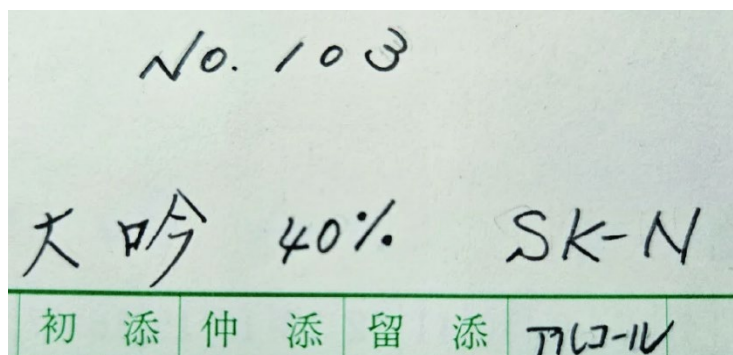 No. 103
大吟 40% SK-N
初添 仲添 留添 アルコール